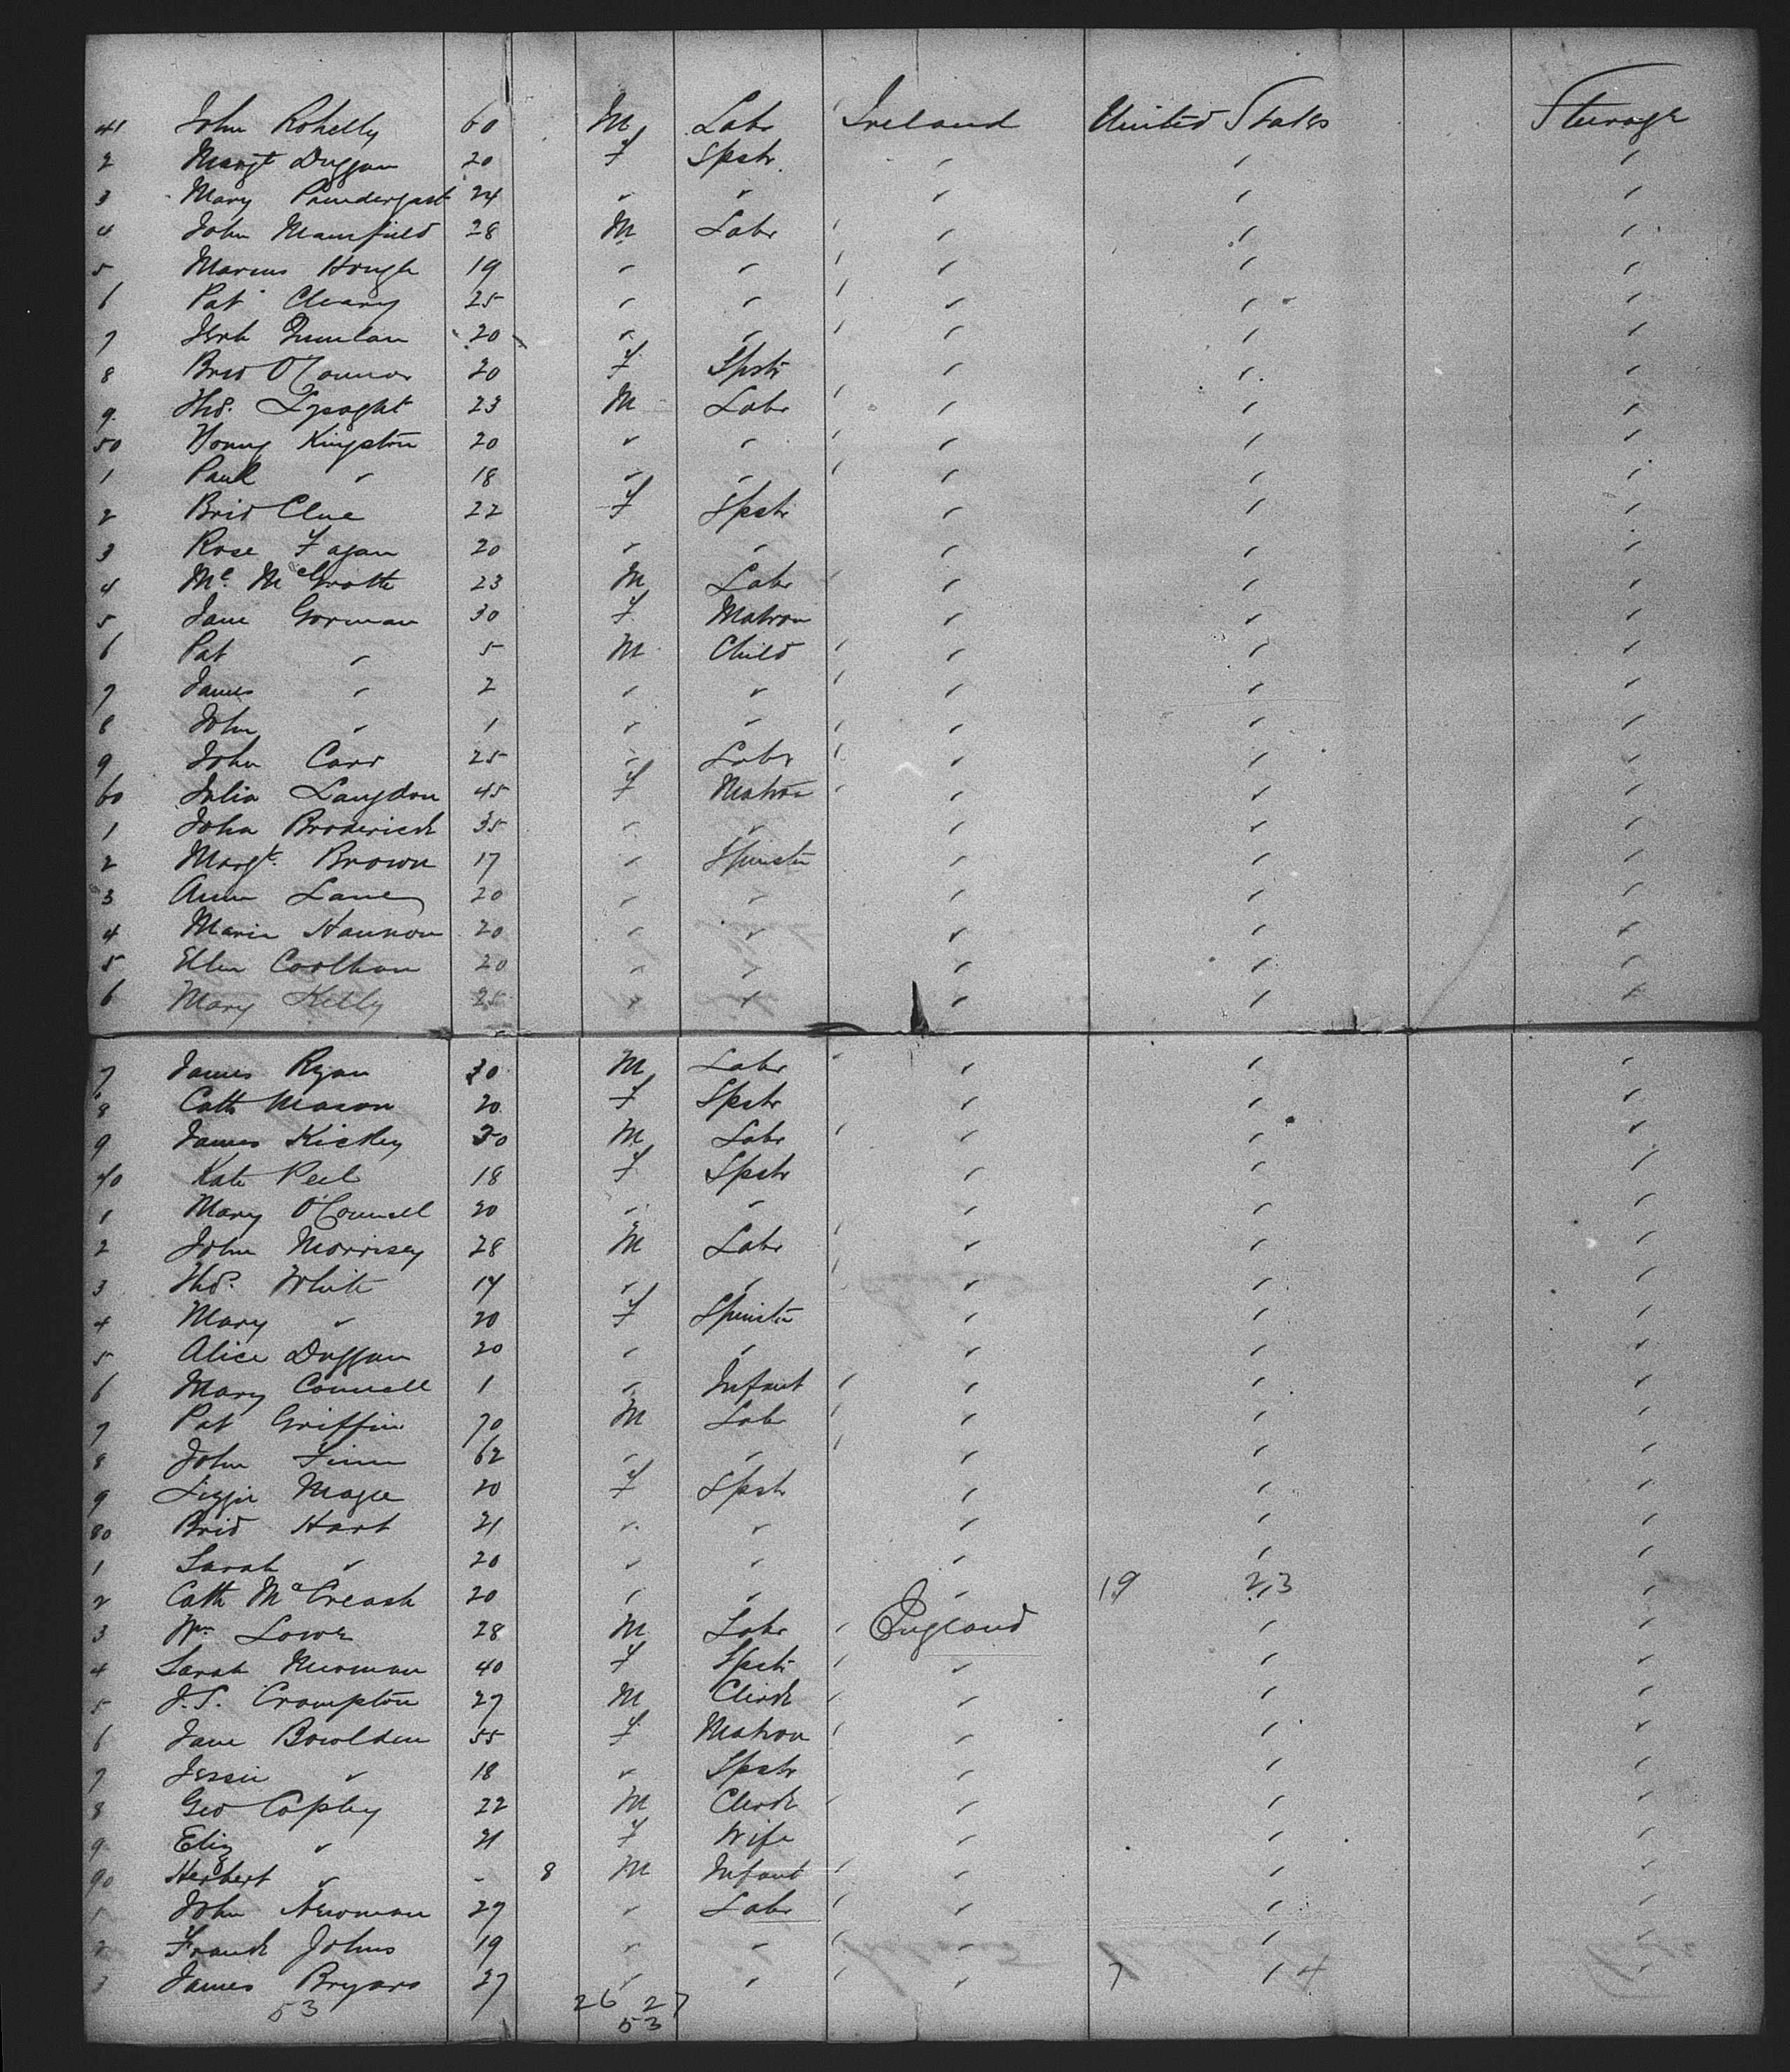 41 John Rohelly 60 M Labr Ireland United States Steerage
2 Margt Duggan 20 F Spstr " " "
3 Mary Prendergast 24 " " " " "
4 John Mansfield 28 M Labr " " "
5 Marcus Hough 19 " " " " "
6 Pat Cleary 25 " " " " "
7 20 " " " " "
8 Brid O'Connor 20 F Spstr " " "
9 Thos. Lysaght 23 M Labr " " "
50 Kingston 20 " " " " "
1 Paul " 18 " " " " "
2 Brid Clue 22 F Spstr " " "
3 Rose Fagan 20 " " " " "
4 Ml. McGrath 23 M Labr " " "
5 Jane Gorman 30 F Matron " " "
6 Pat " 5 M Child " " "
7 James " 2 " " " " "
8 John " 1 " " " " "
9 John Carr 25 " Labr " " "
60 Julia Langdon 45 F Matron " " "
1 John Broderick 35 " " " " "
2 Margt. Brown 17 " Spinster " " "
3 Ann Lane 20 " " " " "
4 Maria Hannon 20 " " " " "
5 Ellen 20 " " " " "
6 Mary Kelly 25 " " " " "
7 James Ryan 30 M Labr " " "
8 Cath Mason 20 F Spstr " " "
9 James Hickey 30 M Labr " " "
70 Kate Peel 18 F Spstr " " "
1 Mary O'Connell 20 " " " " "
2 John Morrisey 28 M Labr " " "
3 Thos. White 14 " " " " "
4 Mary " 20 F Spinster " " "
5 Alice Duggan 20 " " " " "
6 Mary Connell 1 " Infant " " "
7 Pat Griffin 70 M Labr " " "
8 John Finn 62 " " " " "
9 Lizzie Magee 20 F Spstr " " "
80 Brid Hart 21 " " " " "
1 Sarah " 20 " " " " "
2 Cath McCreash 20 " " " 19 23 "
3 Wm Lowe 28 M Labr England " "
4 Sarah Newman 40 F Spstr " " "
5 J.S. Crompton 27 M Clerk " " "
6 Jane Bowlden 55 F Matron " " "
7 Jessie " 18 " Spstr " " "
8 Geo Copley 22 M Clerk " " "
9 Eliz " 21 F Wife " " "
90 Herbert " - 8 M Infant " " "
1 John Newman 29 " Labr " " "
2 Frank Johns 19 " " " " "
3 James Bryars 27 " " " 7 " 4 "
53 26 27
53